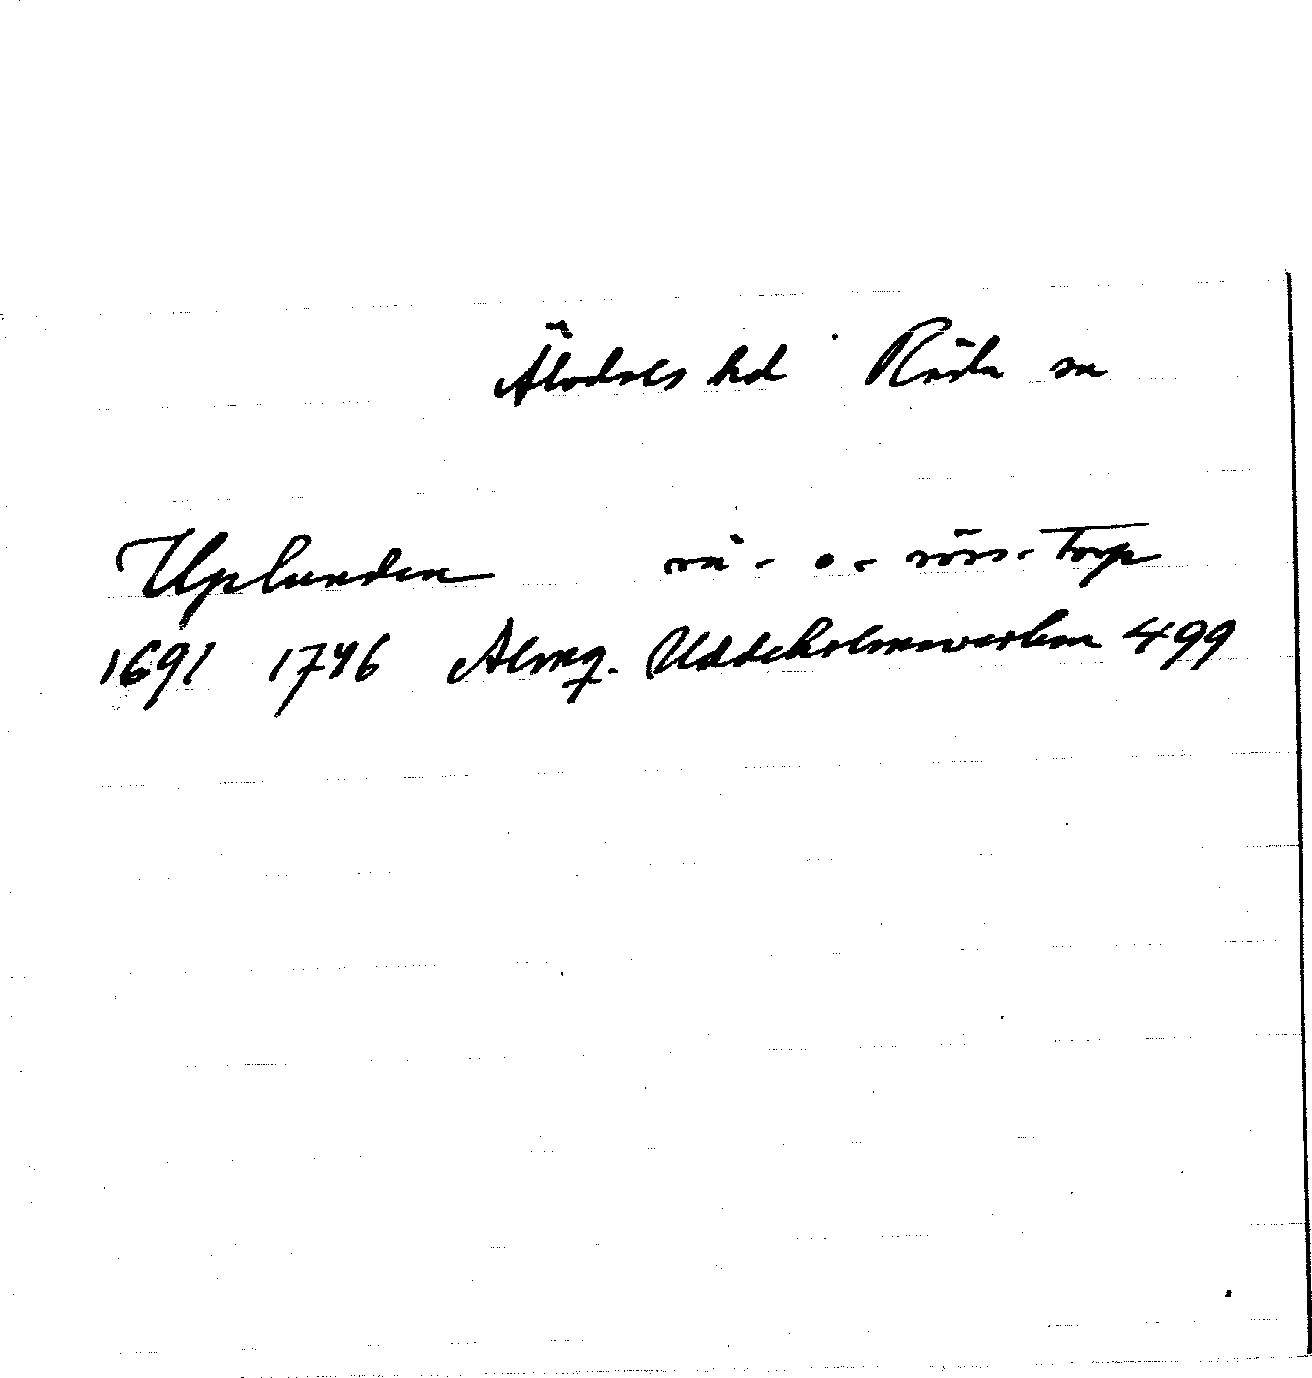 Älvdals hd Råda sn
Uplunden rå- o- rörs-torp
1691 1746 Almq. Uddeholmsverken 499